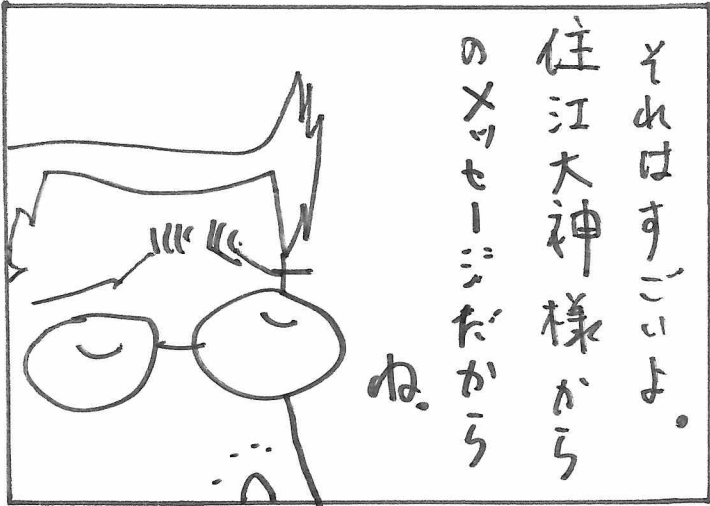 それはすごいよ.
住江大神様から
のメッセージだから
ね.